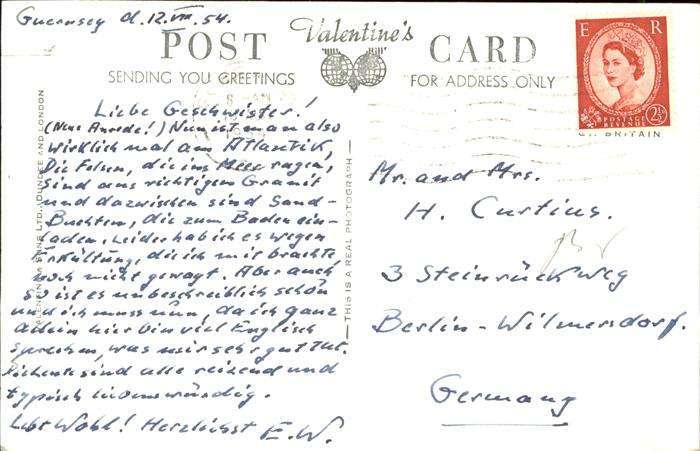 Guernsey d. 12. VIII. 54.
Valentine's
POST CARD
SENDING YOU GREETINGS
FOR ADDRESS ONLY
E R
POSTAGE
REVENUE
2½
BRITAIN
VALENTINE & SONS LTD., DUNDEE AND LONDON
Liebe Geschwister!
(Neue Anrede!) Nun ist man also
wirklich mal am Atlantik,
Die Felsen, die ins Meer ragen,
sind aus richtigem Granit
und dazwischen sind Sand-
Buchten, die zum Baden ein-
laden. Leider hab ich es wegen
Erkältung, die ich mit brachte,
noch nicht gewagt. Aber auch
so ist es unbeschreiblich schön
und ich muss nun, da ich ganz
allein hier bin viel Englisch
sprechen, was mir sehr gut tut.
sind alle reizend und
typisch
Lebt Wohl! Herzlichst E.W.
THIS IS A REAL PHOTOGRAPH
Mr. and Mrs.
H. Curtius.
3 Steinrückweg
Berlin-Wilmersdorf.
Germany